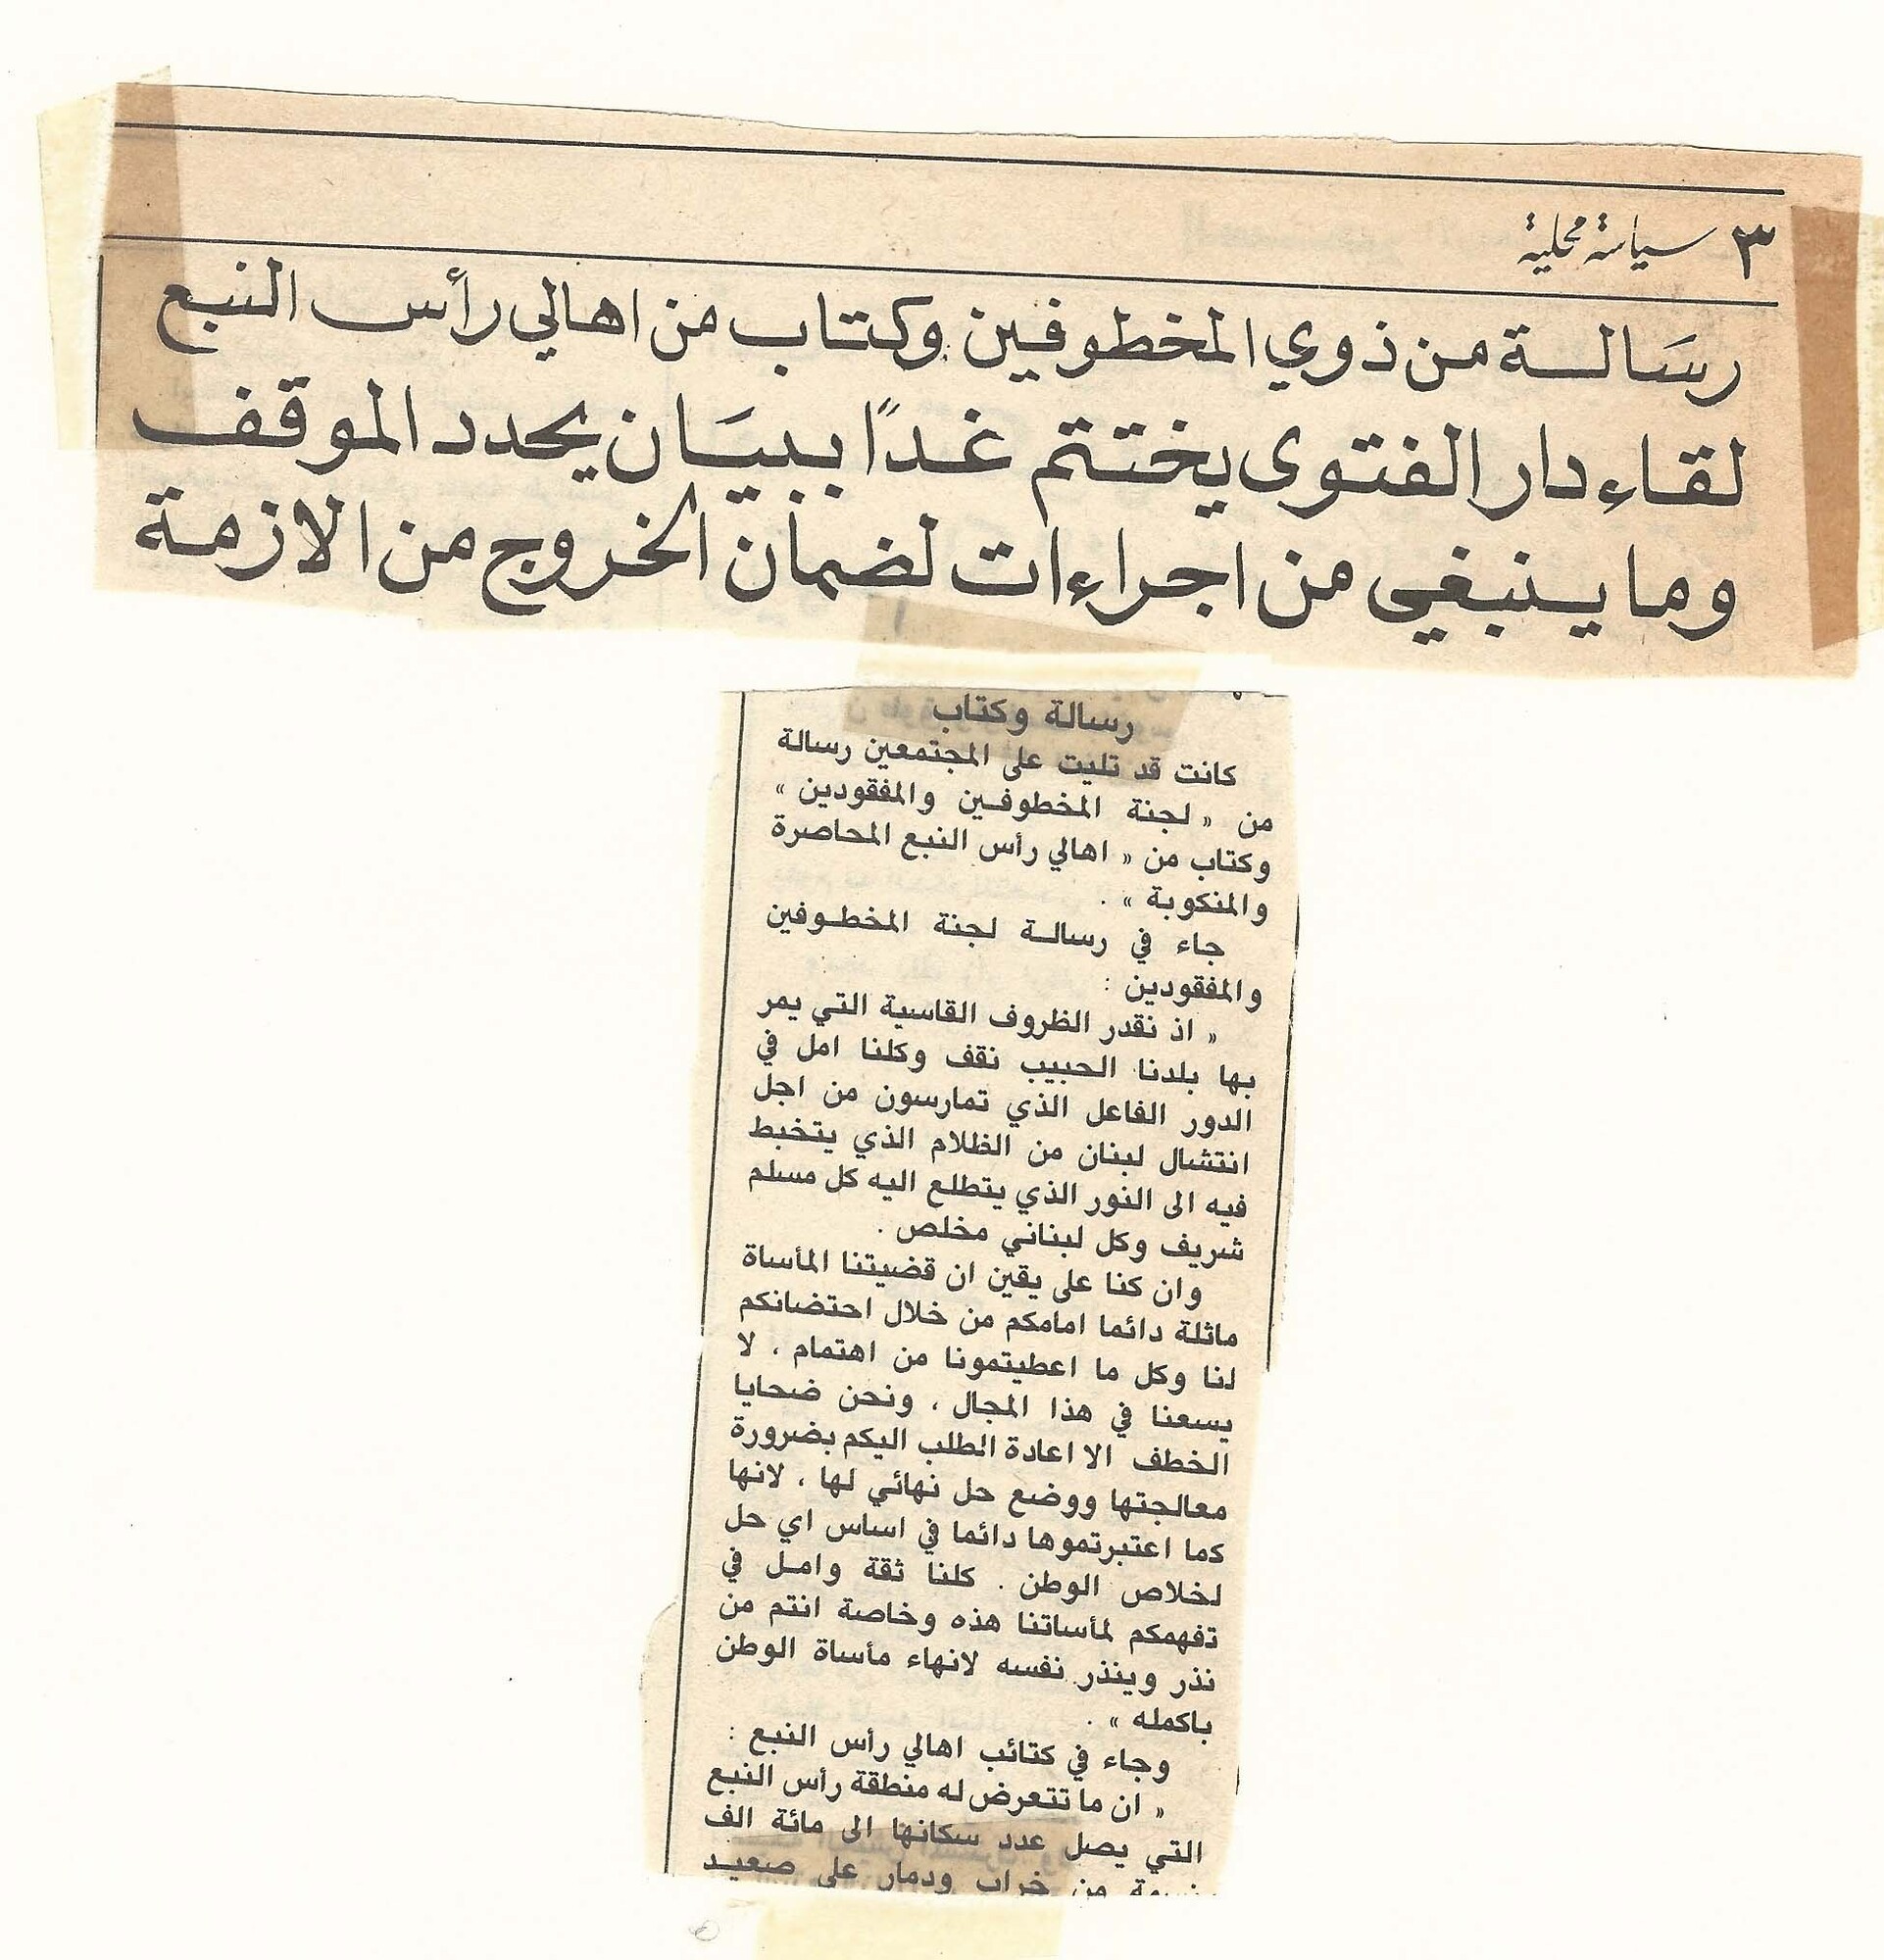 ٣ سياسة محلية
رسَالـة من ذوي المخطوفين وكتاب من اهالي رأس النبع
لقاء دار الفتوى يختتم غدًا ببيَان يحدد الموقف
وما ينبغي من اجراءات لضمان الخروج من الازمة
رسالة وكتاب
كانت قد تليت على المجتمعين رسالة
من « لجنة المخطوفين والمفقودين »
وكتاب من « اهالي رأس النبع المحاصرة
والمنكوبة » .
جاء في رسالة لجنة المخطوفين
والمفقودين :
« اذ نقدر الظروف القاسية التي يمر
بها بلدنا الحبيب نقف وكلنا امل في
الدور الفاعل الذي تمارسون من اجل
انتشال لبنان من الظلام الذي يتخبط
فيه الى النور الذي يتطلع اليه كل مسلم
شريف وكل لبناني مخلص .
وان كنا على يقين ان قضيتنا المأساة
ماثلة دائما امامكم من خلال احتضانكم
لنا وكل ما اعطيتمونا من اهتمام ، لا
يسعنا في هذا المجال ، ونحن ضحايا
الخطف الا اعادة الطلب اليكم بضرورة
معالجتها ووضع حل نهائي لها ، لانها
كما اعتبرتموها دائما في اساس اي حل
لخلاص الوطن . كلنا ثقة وامل في
تفهمكم لمأساتنا هذه وخاصة انتم من
نذر وينذر نفسه لانهاء مأساة الوطن
باكمله » .
وجاء في كتائب اهالي رأس النبع :
« ان ما تتعرض له منطقة رأس النبع
التي يصل عدد سكانها الى مائة الف
نسمة من خراب ودمار على صعيد